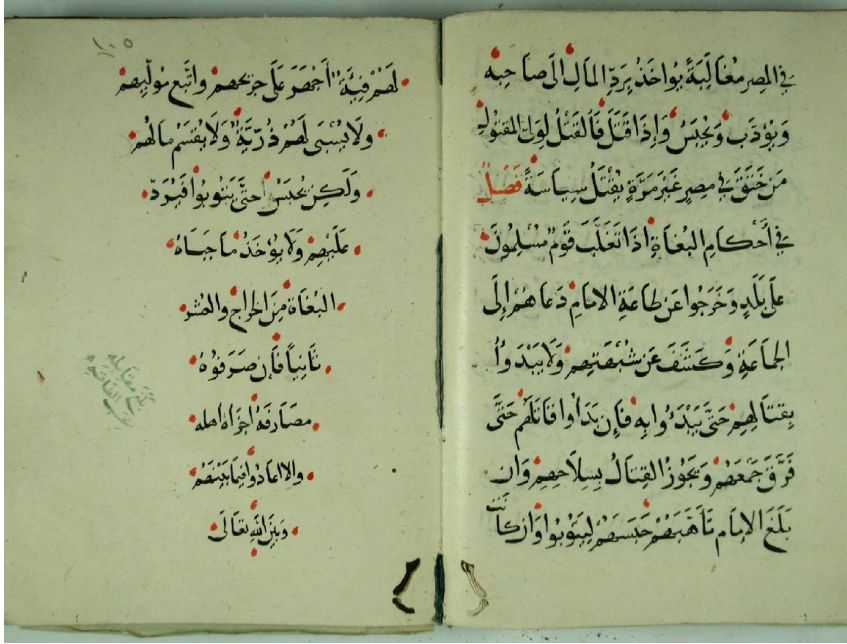 في المصر مغالبة يواخذ برد المال الى صاحبه
ويؤدب ويحبس وإذا قتل فالقتل لولي المقتول
من خنق في مصر غير مرة يقتل سياسة فصل
في أحكام البغاة اذا تغلب قوم مسلمون
على بلد وخرجوا عن طاعة الامام دعاهم إلى
الجماعة وكشف عن شبهتهم ولا يبدوا
بقتالهم حتى يبدءوا به فإن بدأوا قاتلهم حتى
فرق جمعهم ويجوز القتال بسلاحهم وان
بلغ الإمام تأهبهم حبسهم ليتوبوا وان كانت
١٠٥
لهم فئة أجهز على جريحهم واتبع موليهم
ولا يسبى لهم ذرية ولا يقسم مالهم
ولكن يحبس حتى يتوبوا فيرد
عليهم ولا يؤخذ ما جباه
البغاة من الخراج والعشر
ثانياً فإن صرفوه
مصارفه اجزاه اهله
والا اعادوا فيما بينهم
وبين الله تعالى
بلغ مقابلة